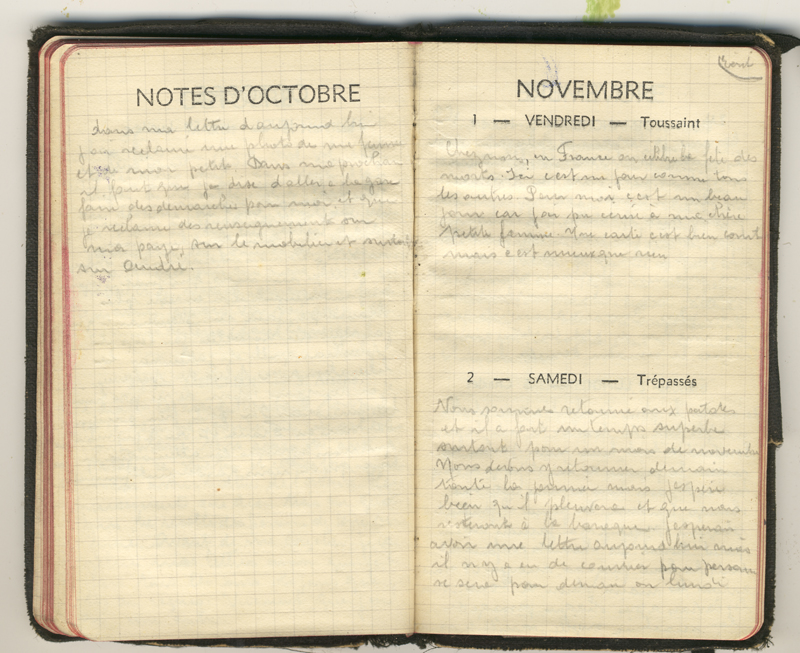 NOTES D'OCTOBRE
dans ma lettre d'aujourd hui
j'ai réclamé une photo de ma femme
et de mon petit. Dans ma prochaine
il faut que je dise d'aller à la gare
faire des démarches pour moi et que
je réclame des renseignements sur
ma paye, sur le mobilier et surtout
sur André.
NOVEMBRE
1 — VENDREDI — Toussaint
Chez nous, en France on célèbre la fête des
morts. Ici c'est un jour comme tous
les autres. Pour moi, c'est un beau
jour car j'ai pu écrire à ma chère
petite femme. Une carte c'est bien court
mais c'est mieux que rien
2 — SAMEDI — Trépassés
Nous sommes retourné aux patates
et il a fait un temps superbe
surtout pour un mois de novembre
Nous devons y retourner demain
toute la journée mais j'espère
bien qu'il pleuvera et que nous
resterons à la baraque. J'espérais
avoir une lettre aujourd'hui mais
il n'y a eu de courrier pour personne
se sera pour demain ou lundi